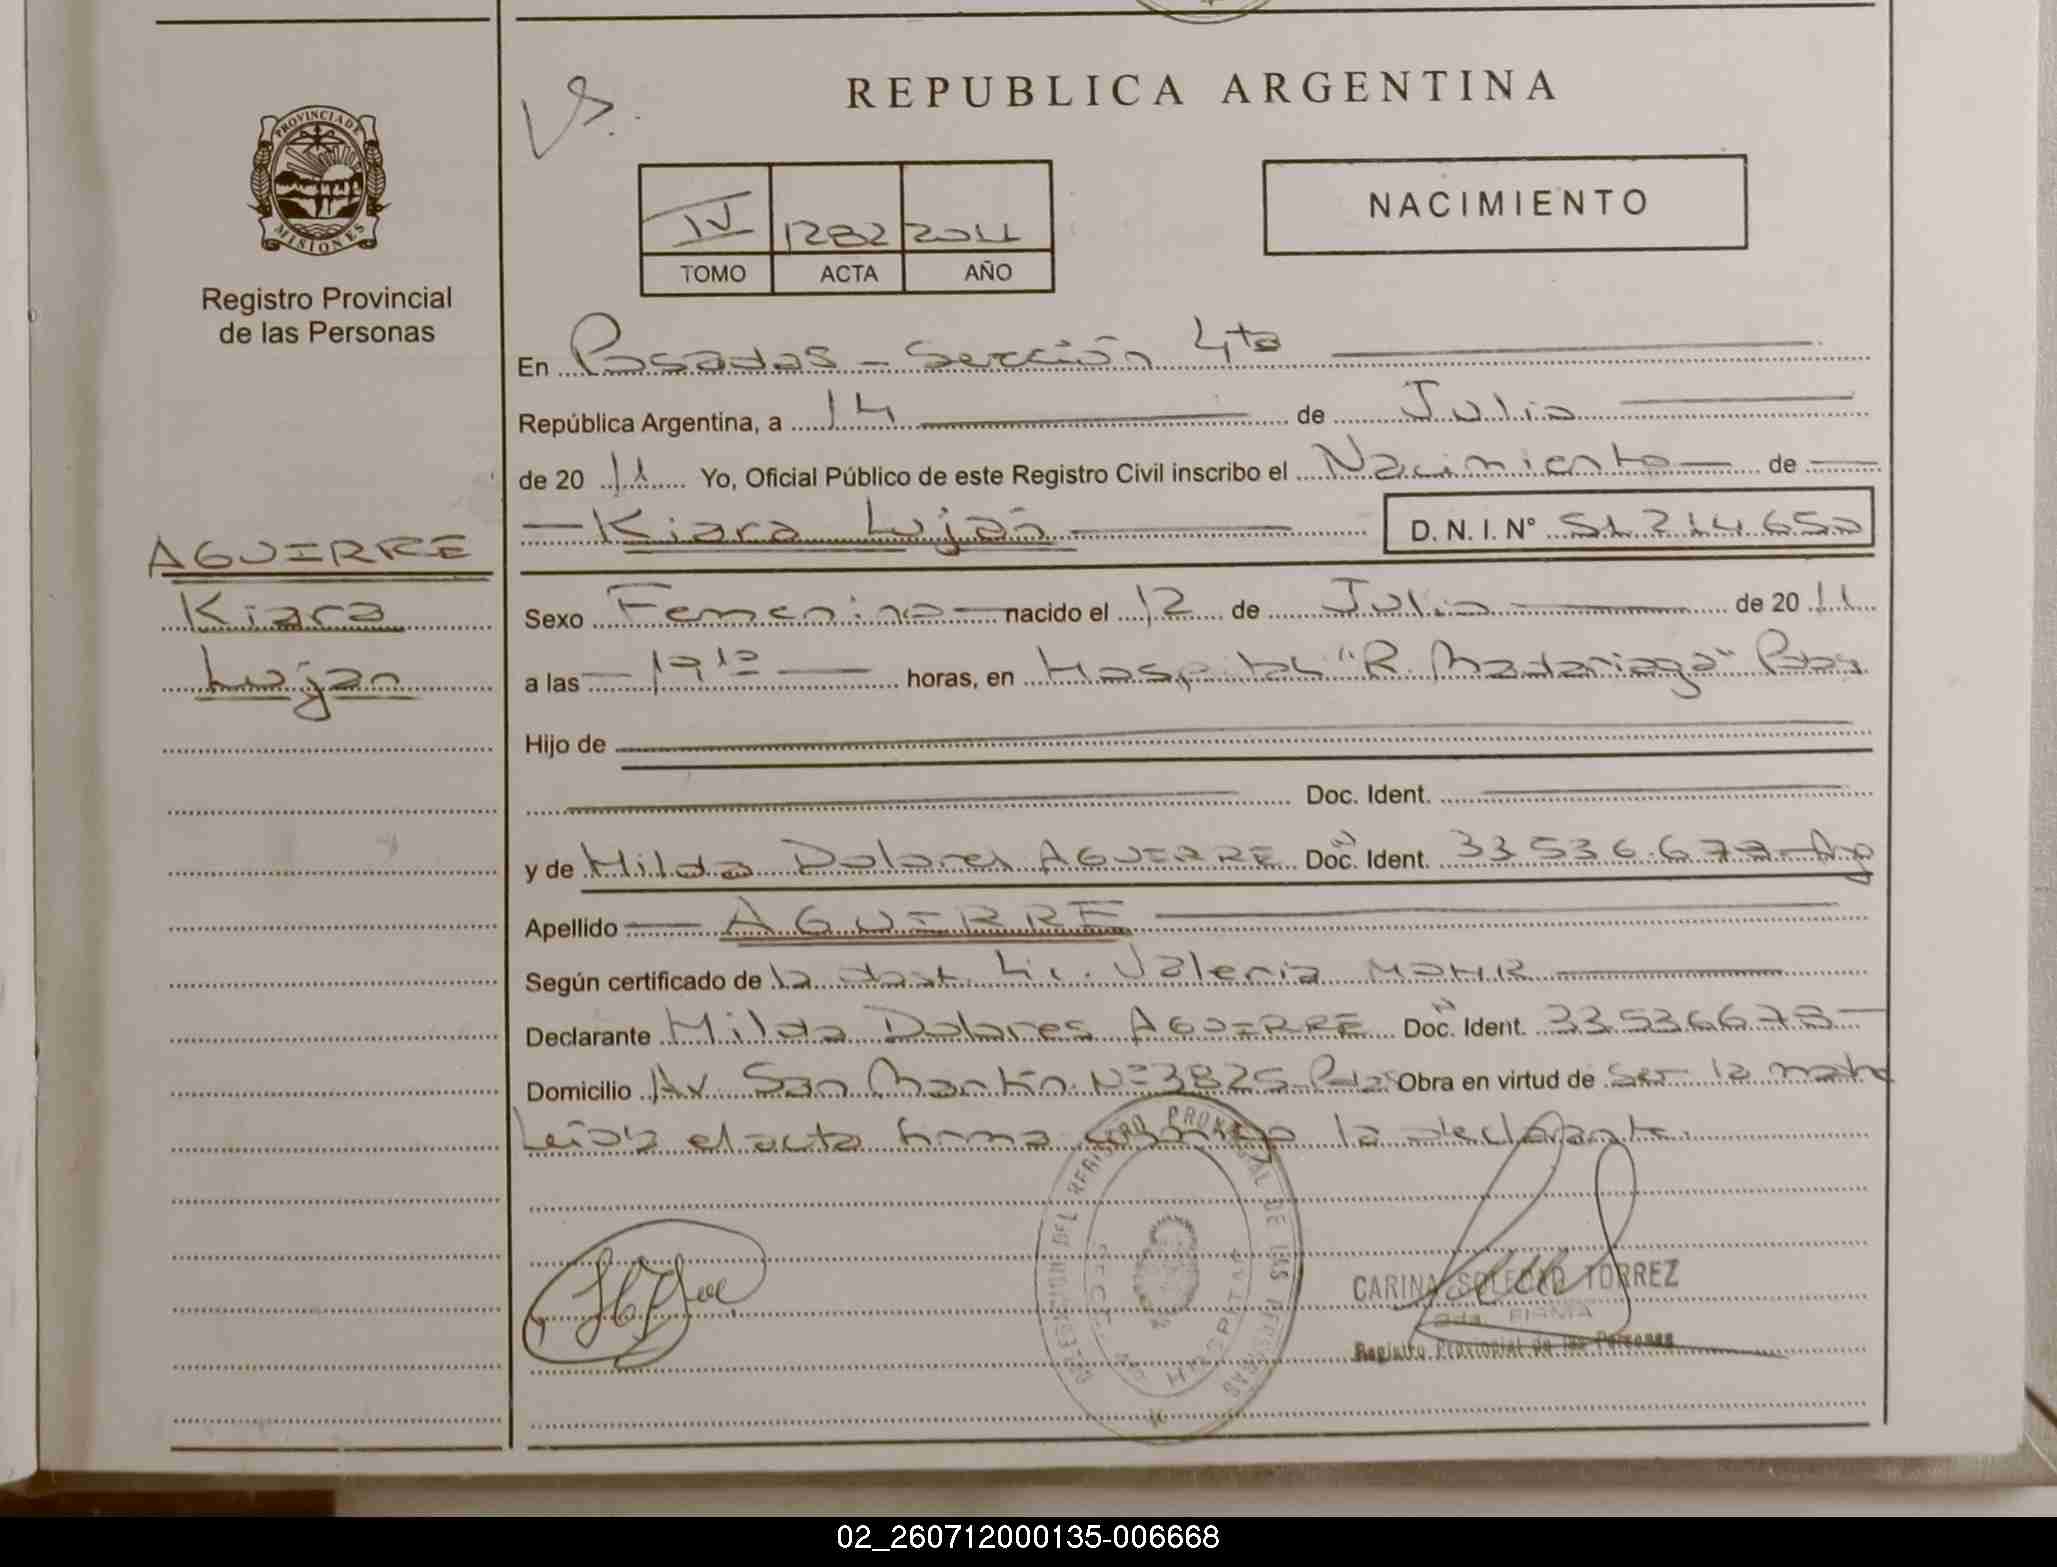 REPUBLICA ARGENTINA
PROVINCIA DE MISIONES
Registro Provincial
de las Personas
IV 1282 2011
TOMO ACTA AÑO
NACIMIENTO
En Posadas - Sección 4ta
República Argentina, a 14 de Julio
de 20 11 Yo, Oficial Público de este Registro Civil inscribo el Nacimiento de
Kiara Luján D. N. I. N° 51.214.650
AGUIRRE
Kiara
Luján
Sexo Femenino nacido el 12 de Julio de 20 11
a las 19 10 horas, en Hospital "R. Madariaga" Pdas
Hijo de
Doc. Ident.
y de Hilda Dolores AGUIRRE Doc. Ident. 33.536.678 Arg
Apellido AGUIRRE
Según certificado de la obst. Lic. Valeria MOHR
Declarante Hilda Dolores AGUIRRE Doc. Ident. 33536678
Domicilio Av. San Martín N° 3825 Pdas Obra en virtud de ser la madre
Leída el acta firma conmigo la declarante.
DIRECCION DEL REGISTRO PROVINCIAL DE LAS PERSONAS
CARINA SOLEDAD TORREZ
2da. FIRMA
Registro Provincial de las Personas
02_260712000135-006668